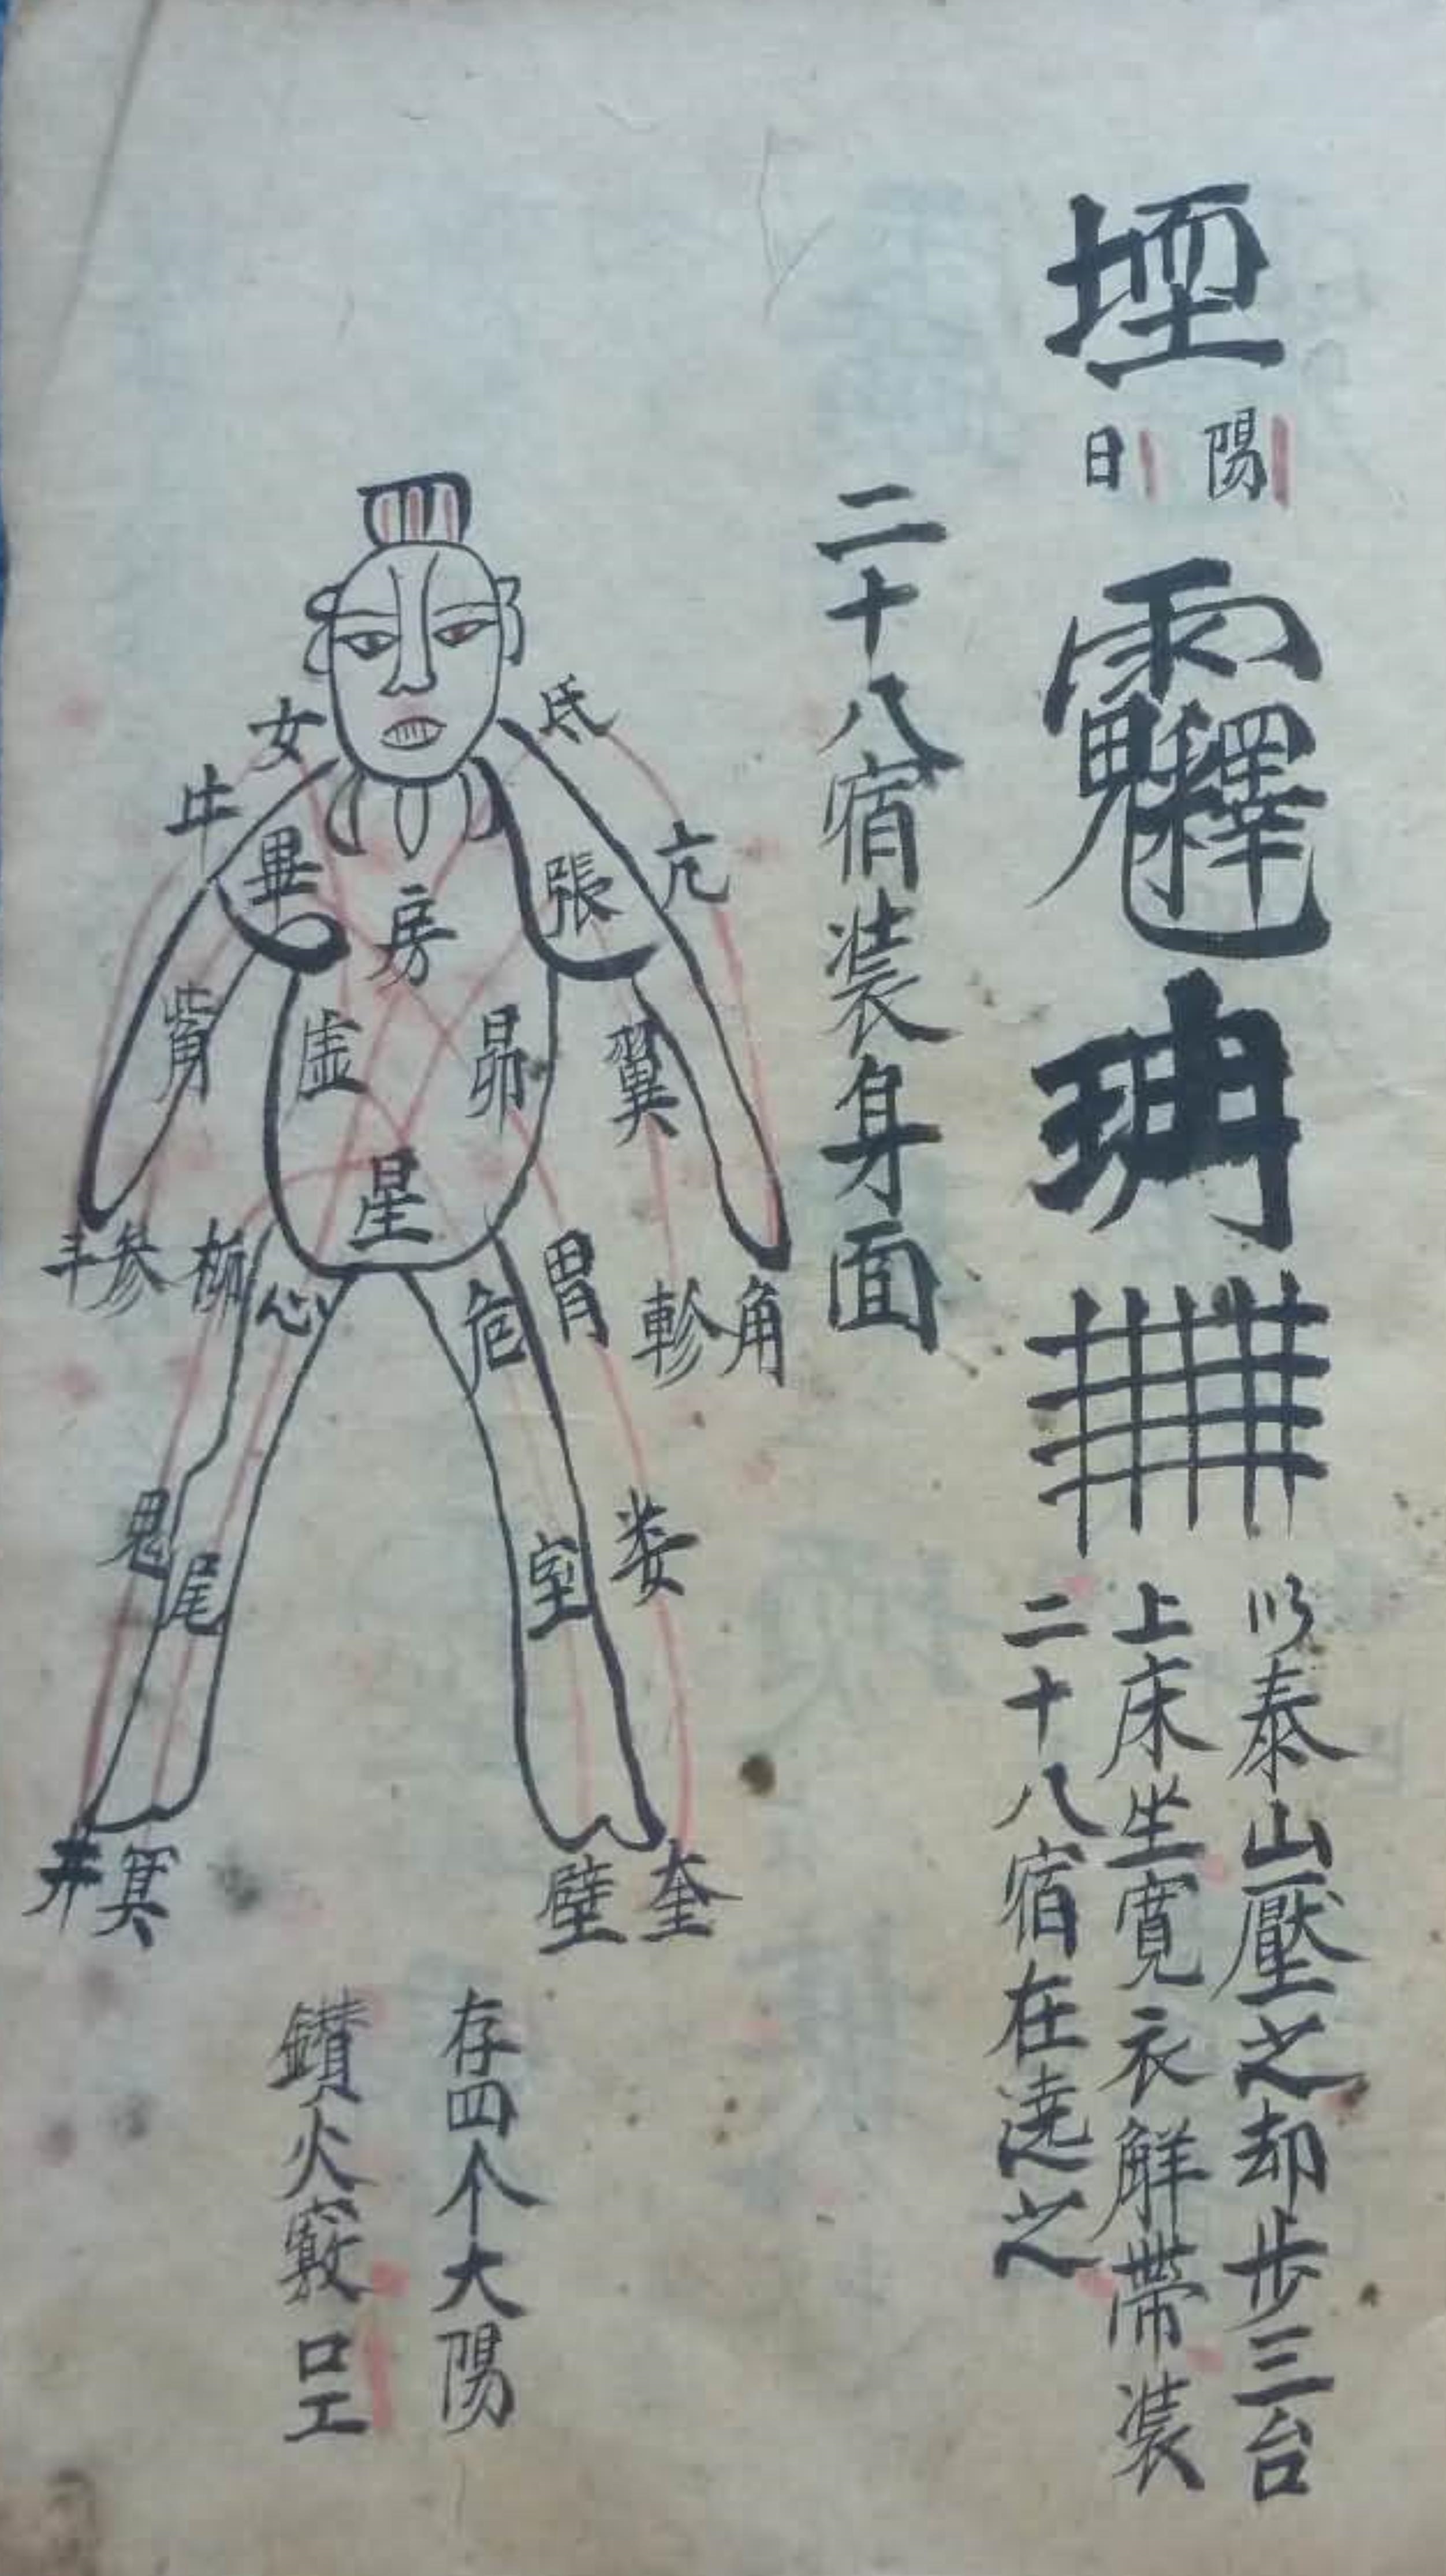 陽
日
以泰山壓之却步三台
上床坐寬衣解帶装
二十八宿在遶之
二十八宿装身面
氐
女
牛
畢
房
張
亢
觜
虚
昴
翼
星
斗
参
柳
心
危
胃
軫
角
鬼
尾
室
娄
井
箕
壁
奎
存四个大陽
鑚火竅口工